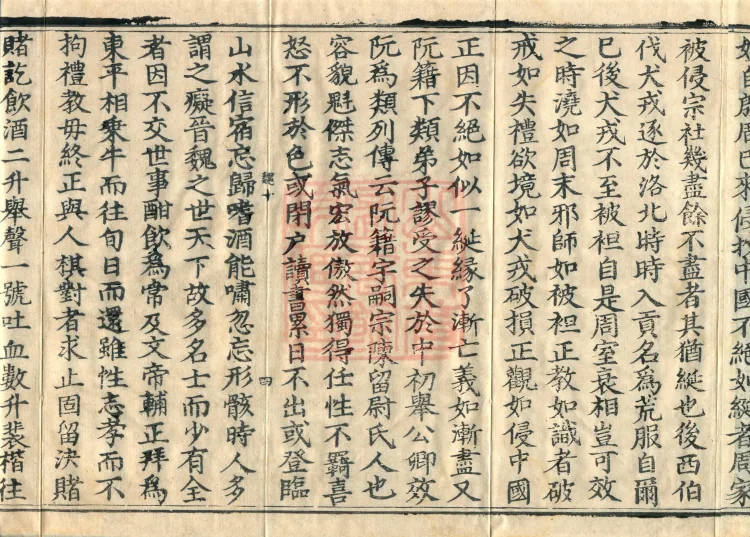 被侵宗社幾盡餘不盡者其猶綖也後西伯
伐犬戎逐於洛北時時入貢名為荒服自爾
已後犬戎不至被袒自是周室衰相豈可效
之時澆如周末邪師如被袒正教如識者破
戒如失禮欲境如犬戎破損正觀如侵中國
正因不絕如似一綖緣了漸亡義如漸盡又
阮籍下類弟子謬受之失於中初舉公卿效
阮為類列傳云阮籍字嗣宗陳留尉氏人也
容貌魁傑志氣宏放傲然獨得任性不羈喜
怒不形於色或閉户讀書累日不出或登臨
輟十
四
山水信宿忘歸嗜酒能嘯忽忘形骸時人多
謂之癡晉魏之世天下故多名士而少有全
者因不交世事酣飲為常及文帝輔正拜為
東平相乘牛而往旬日而還雖性志孝而不
拘禮教毋終正與人棋對者求止固留決賭
賭訖飲酒二升舉聲一號吐血數升裴楷往